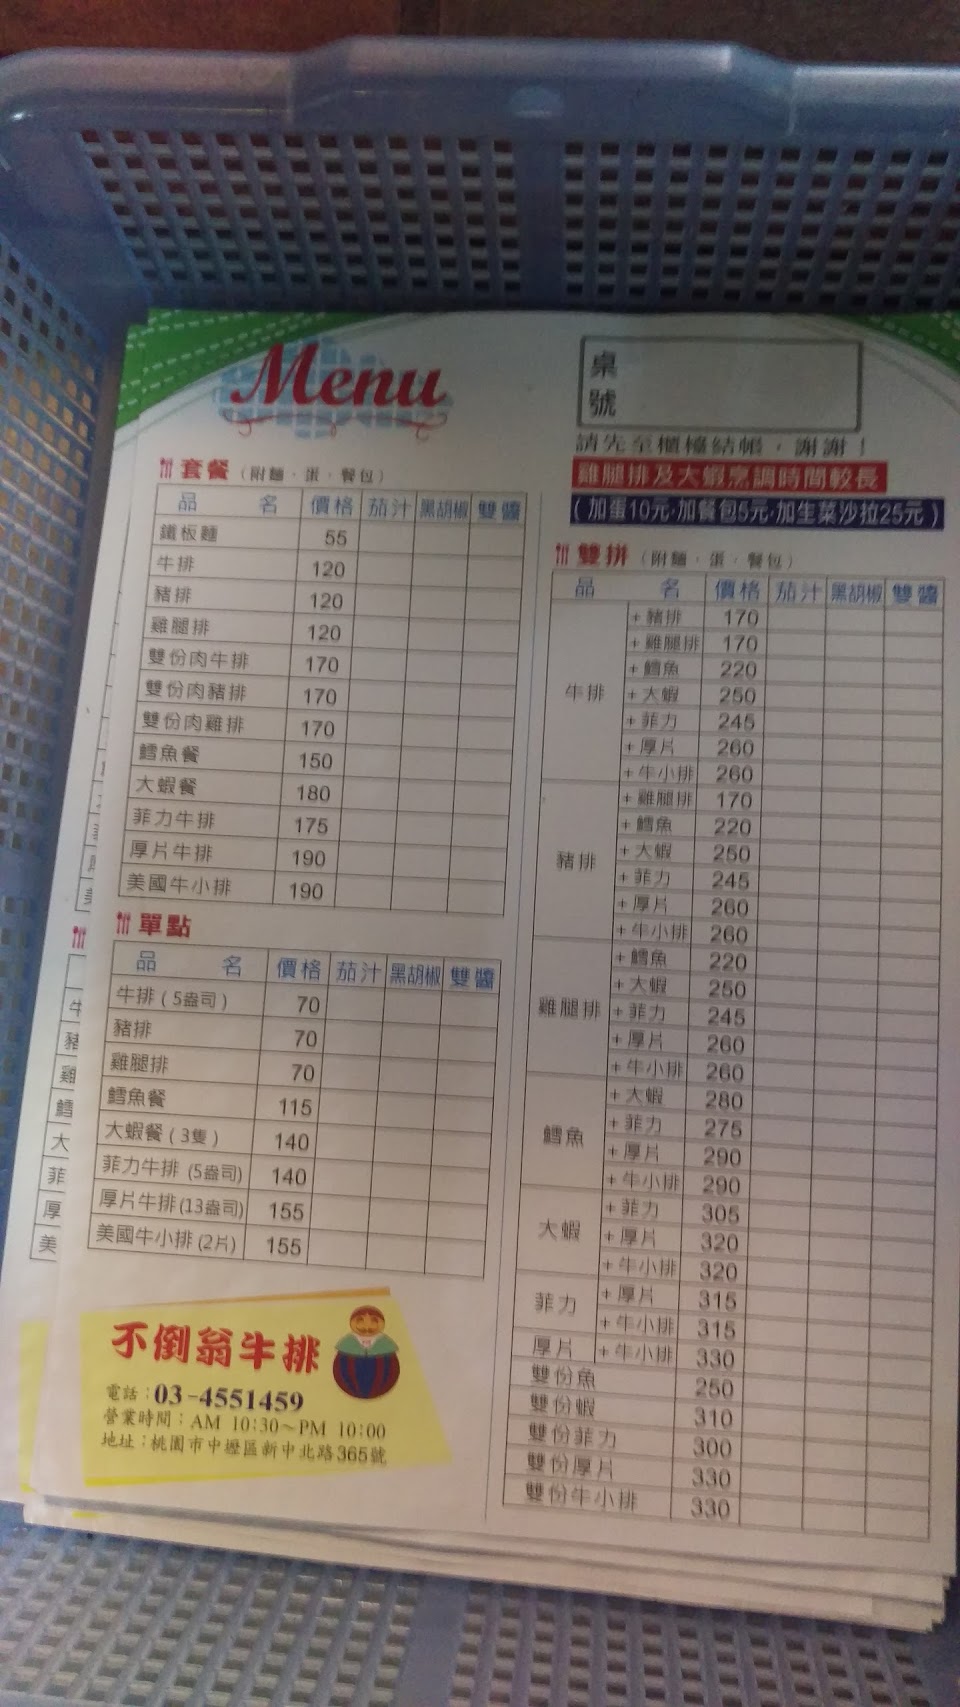 Menu
桌號
請先至櫃檯結帳，謝謝！
雞腿排及大蝦烹調時間較長
（加蛋10元·加餐包5元·加生菜沙拉25元）
套餐（附麵．蛋．餐包）
品 名 價格 茄汁 黑胡椒 雙醬
鐵板麵 55
牛排 120
豬排 120
雞腿排 120
雙份肉牛排 170
雙份肉豬排 170
雙份肉雞排 170
鱈魚餐 150
大蝦餐 180
菲力牛排 175
厚片牛排 190
美國牛小排 190
單點
品 名 價格 茄汁 黑胡椒 雙醬
牛排（5盎司） 70
豬排 70
雞腿排 70
鱈魚餐 115
大蝦餐（3隻） 140
菲力牛排 (5盎司) 140
厚片牛排(13盎司) 155
美國牛小排(2片) 155
不倒翁牛排
電話：03-4551459
營業時間：AM 10:30～PM 10:00
地址：桃園市中壢區新中北路365號
雙拼（附麵．蛋．餐包）
品 名 價格 茄汁 黑胡椒 雙醬
牛排
+豬排 170
+雞腿排 170
+鱈魚 220
+大蝦 250
+菲力 245
+厚片 260
+牛小排 260
豬排
+雞腿排 170
+鱈魚 220
+大蝦 250
+菲力 245
+厚片 260
+牛小排 260
雞腿排
+鱈魚 220
+大蝦 250
+菲力 245
+厚片 260
+牛小排 260
鱈魚
+大蝦 280
+菲力 275
+厚片 290
+牛小排 290
大蝦
+菲力 305
+厚片 320
+牛小排 320
菲力
+厚片 315
+牛小排 315
厚片 +牛小排 330
雙份魚 250
雙份蝦 310
雙份菲力 300
雙份厚片 330
雙份牛小排 330
牛
豬
雞
鱈
大
菲
厚
美